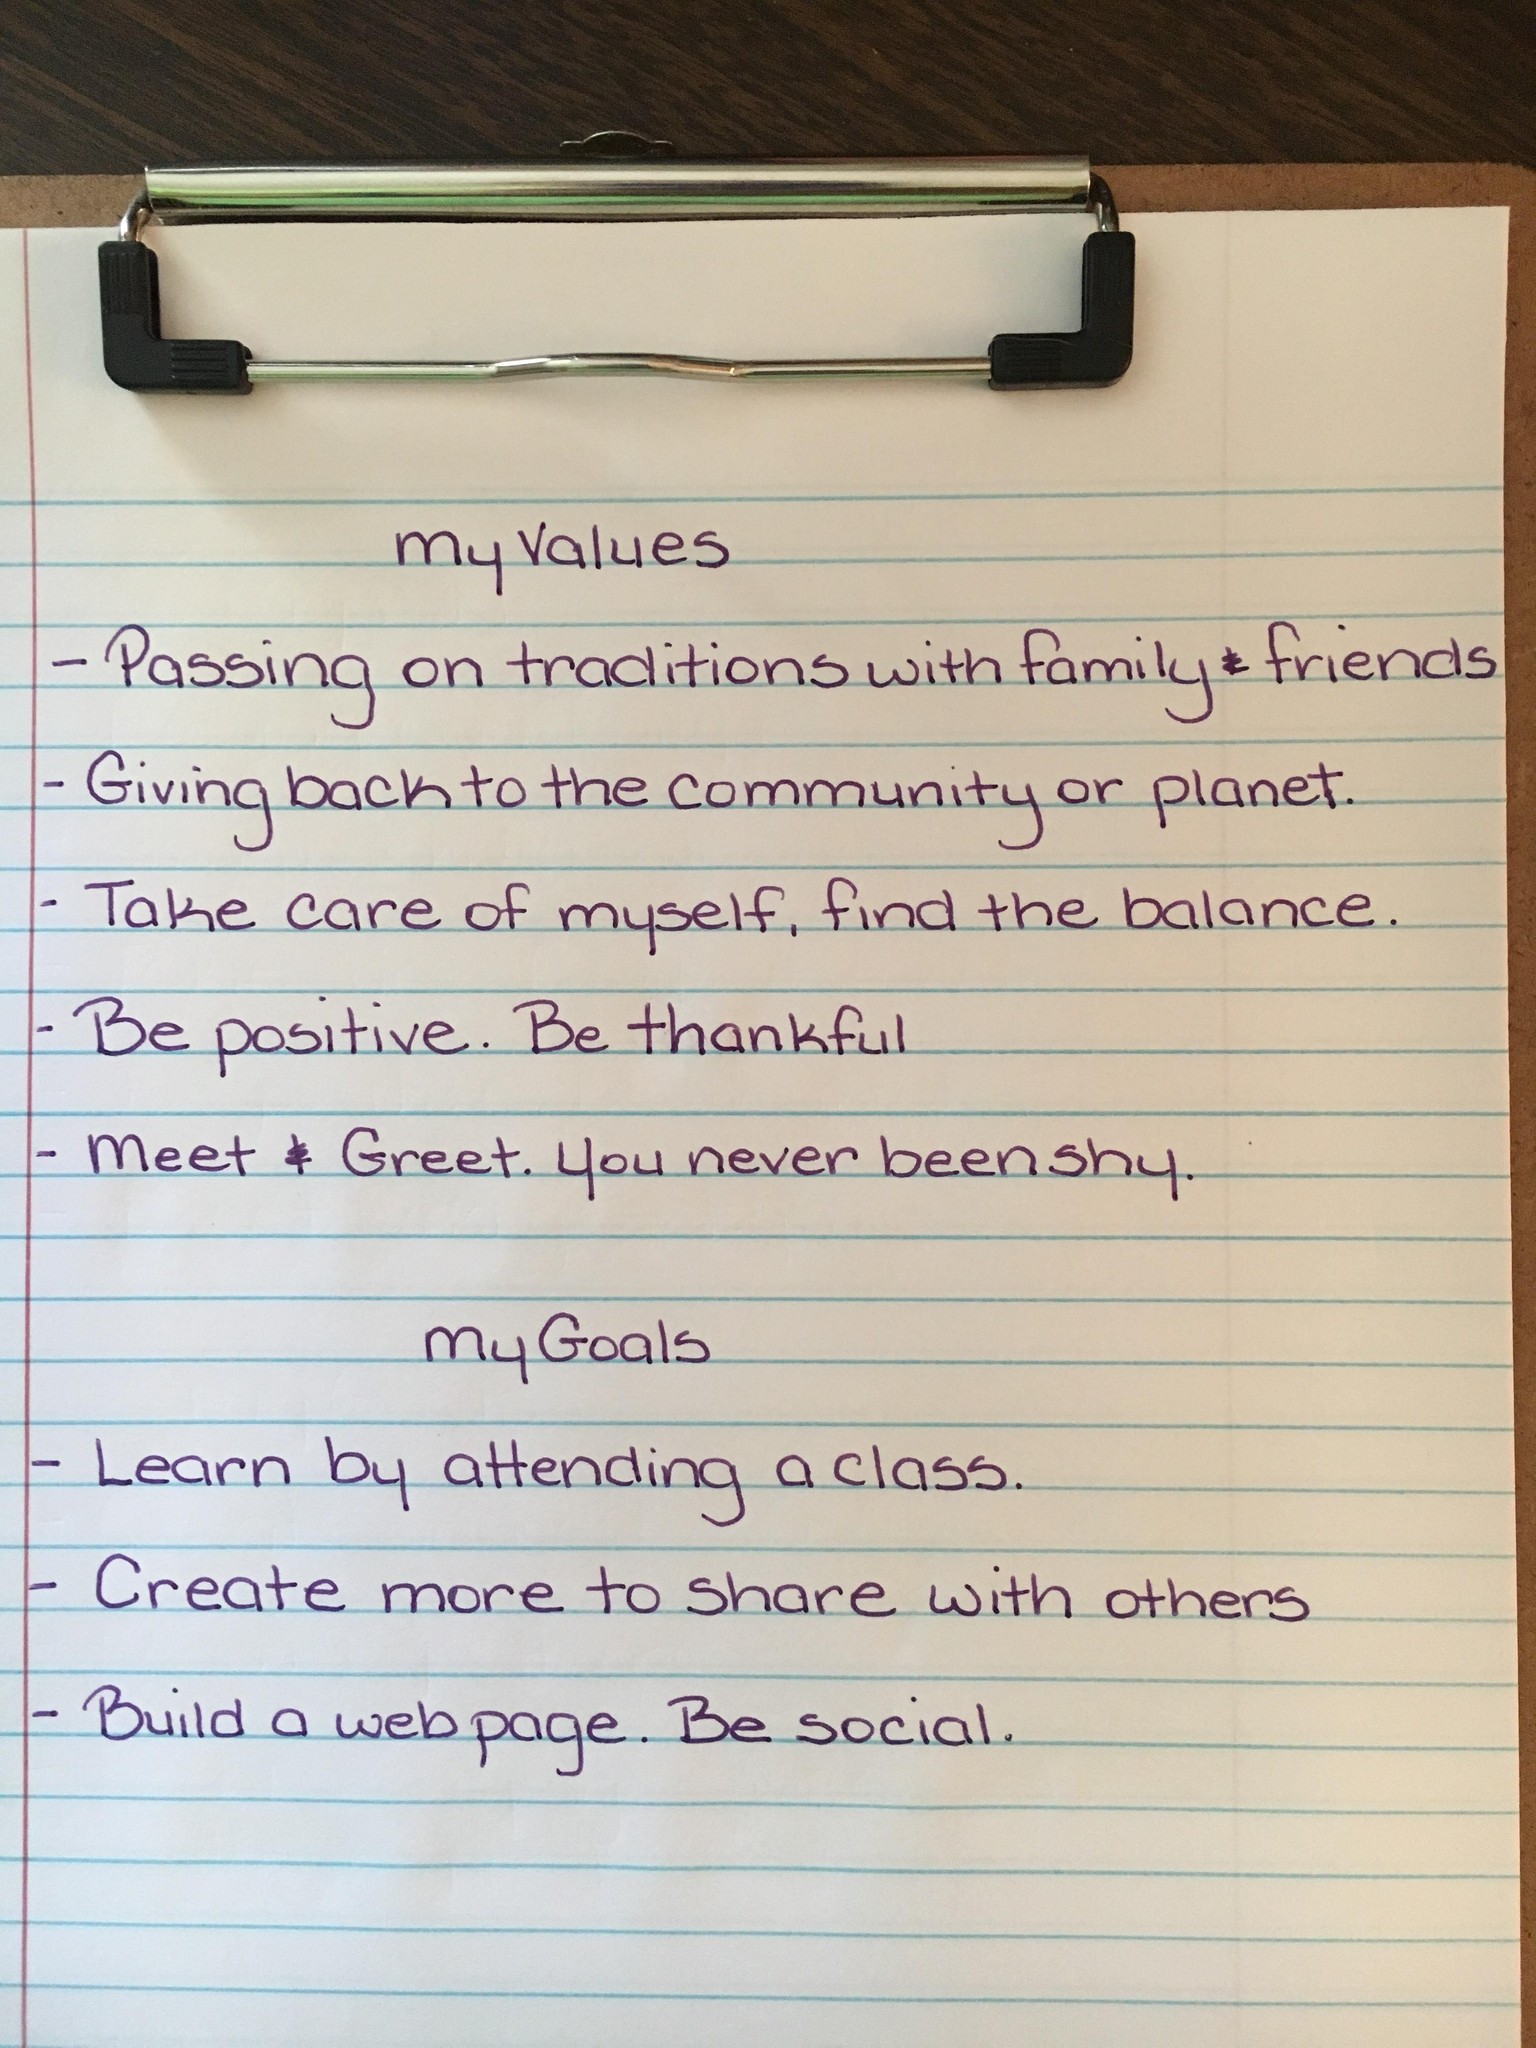 My Values
- Passing on traditions with family & friends
- Giving back to the community or planet.
- Take care of myself, find the balance.
- Be positive. Be thankful
- Meet & Greet. You never been shy.
My Goals
- Learn by attending a class.
- Create more to share with others
- Build a web page. Be social.